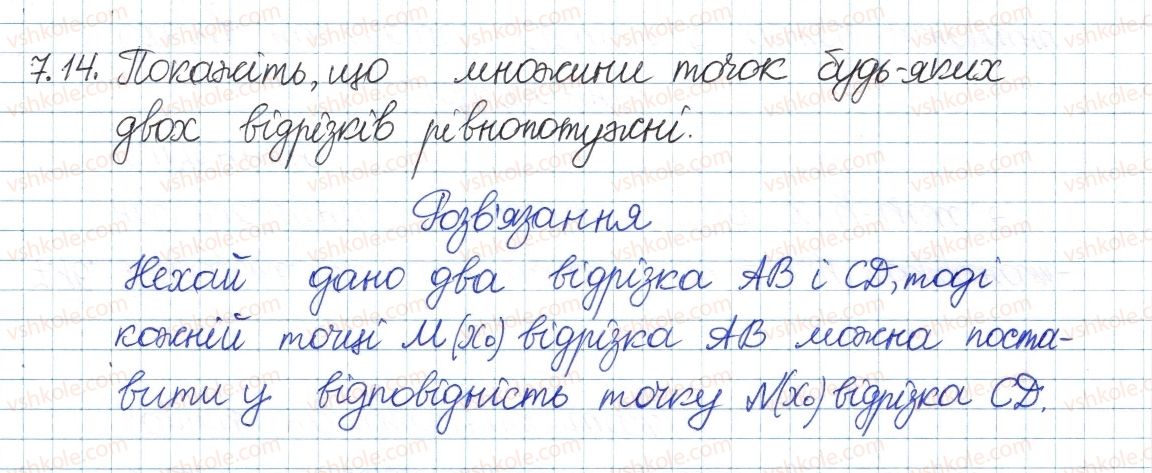 7.14. Покажіть, що множини точок будь-яких
двох відрізків рівнопотужні.
Розв'язання
Нехай дано два відрізка AB і CD, тоді
кожній точці M(x₀) відрізка AB можна поста-
вити у відповідність точку N(x₀) відрізка CD.